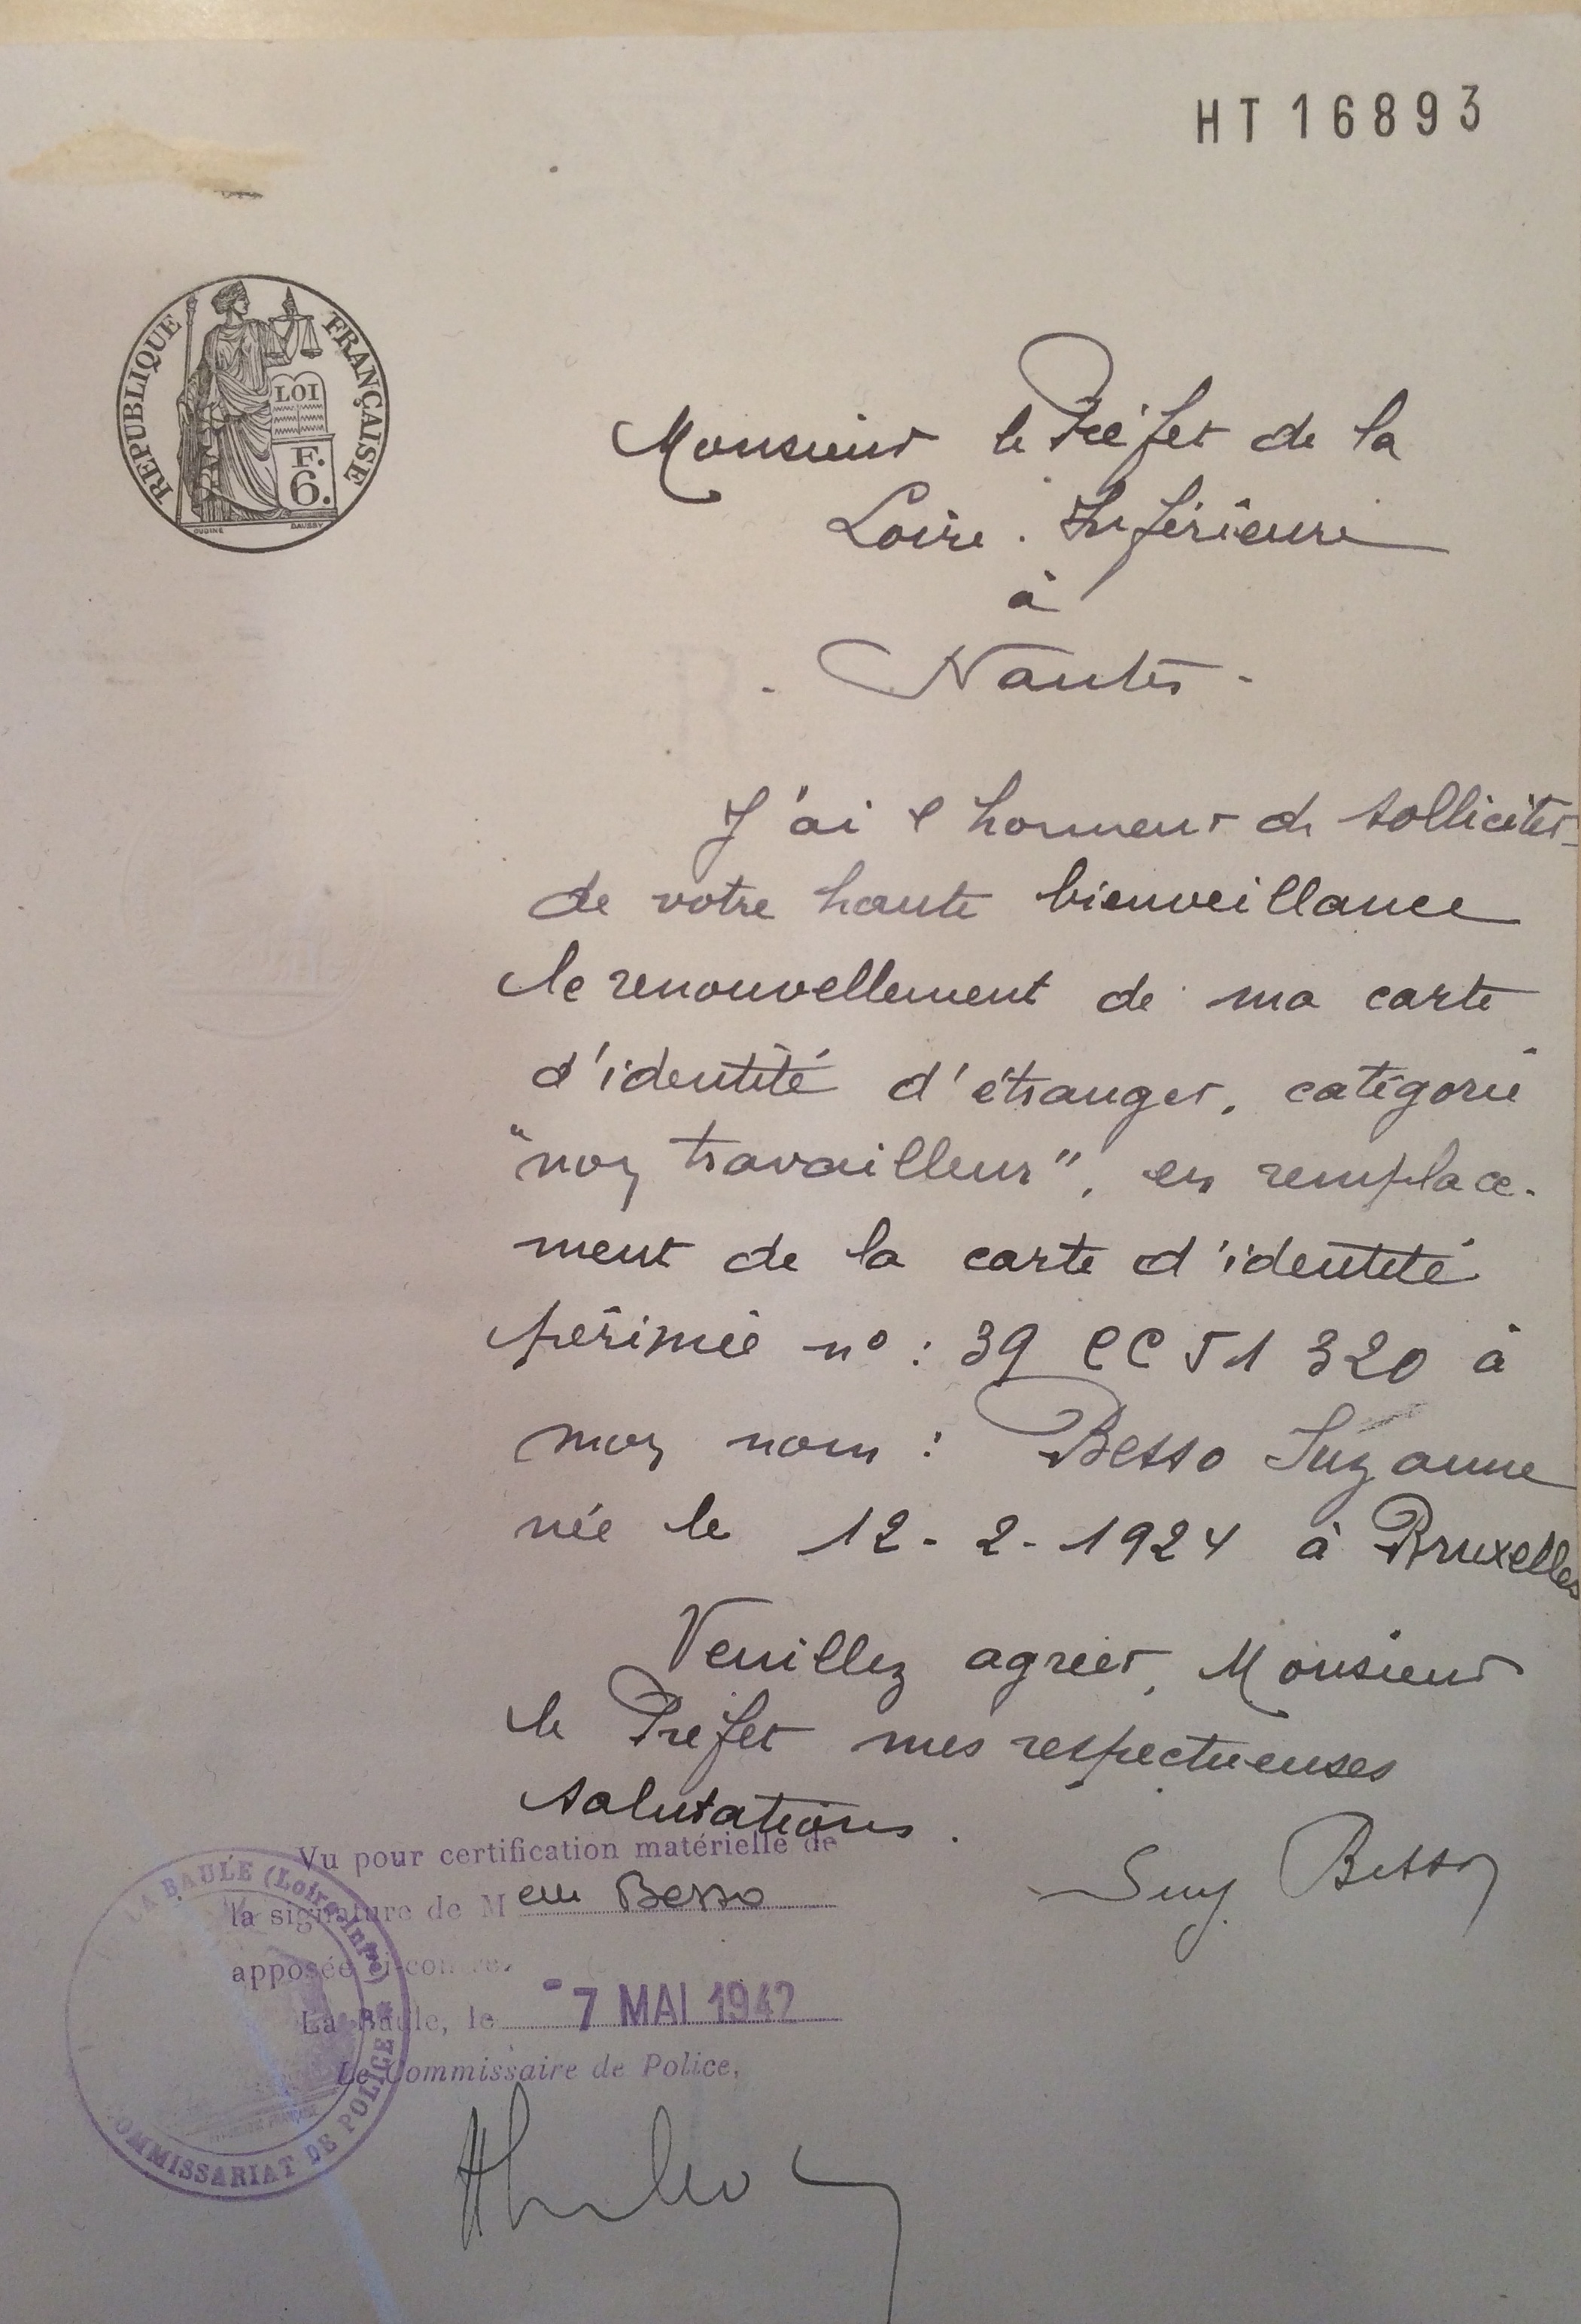 HT 16893
REPUBLIQUE FRANÇAISE
LOI
F.
6.
OUDINÉ
Monsieur le Préfet de la
Loire. Inférieure
à
- Nantes -
J'ai l'honneur de solliciter
de votre haute bienveillance
le renouvellement de ma carte
d'identité d'étranger, catégorie
"non travailleur", en remplace-
ment de la carte d'identité
périmée n° : 39 CC 51 320 à
mon nom : Besso Suzanne
née le 12-2-1924 à Bruxelles
Veuillez agréer, Monsieur
le Préfet mes respectueuses
salutations.
Suz. Besso
Vu pour certification matérielle de
la signature de M elle Besso
apposée ci-contre.
La Baule, le - 7 MAI 1942
Le Commissaire de Police,
LA BAULE (Loire-Infre)
COMMISSARIAT DE POLICE